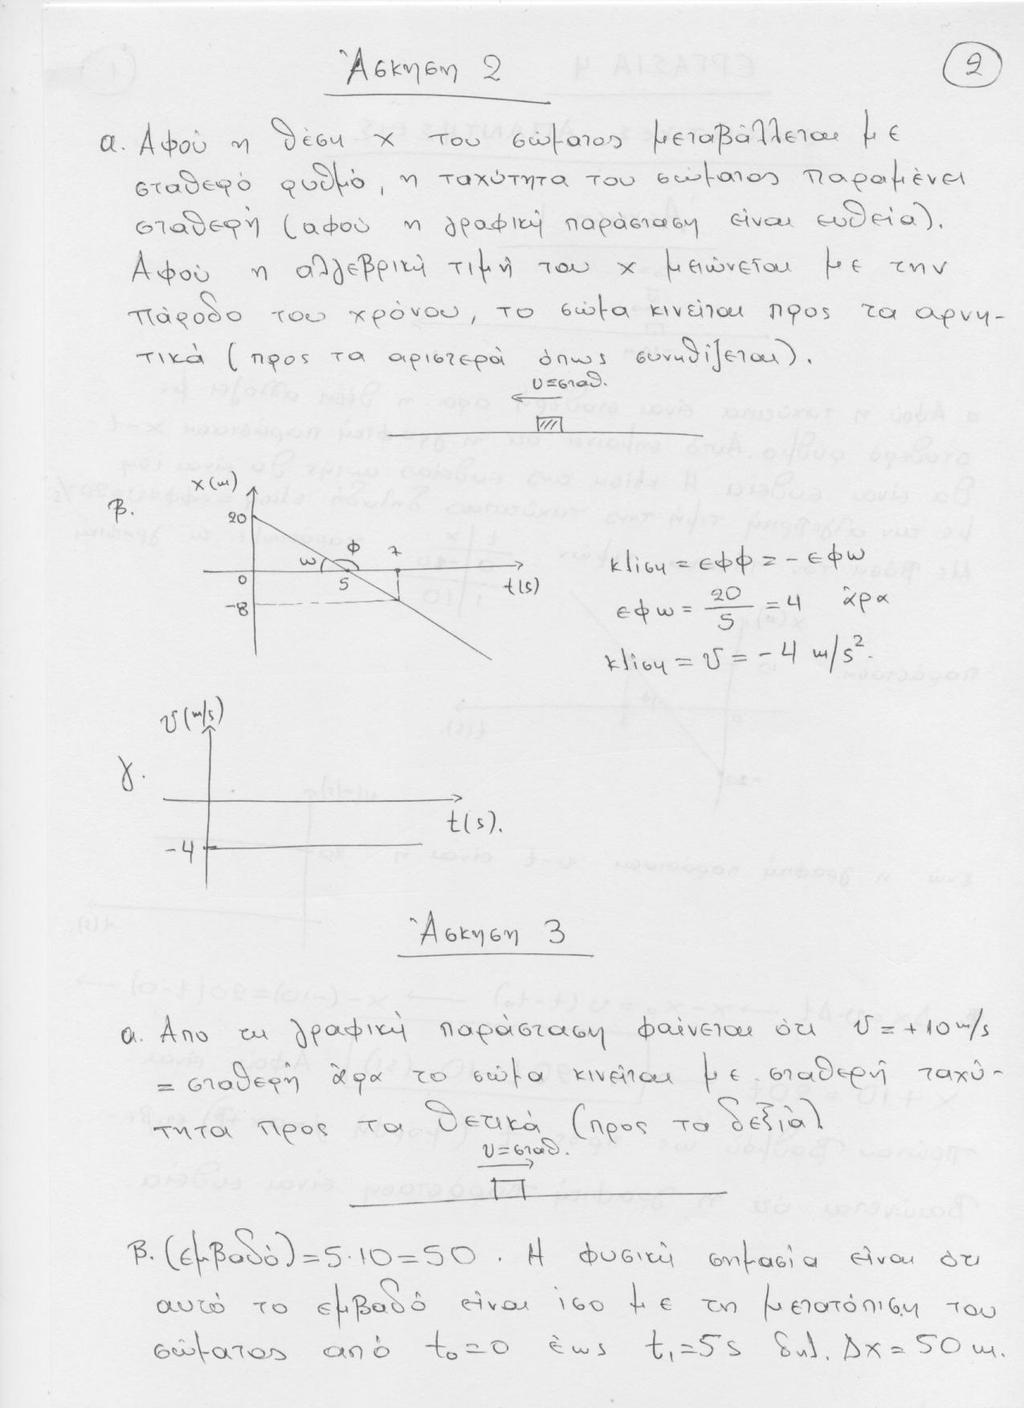 Άσκηση 2
2
α. Αφού η θέση x του σώματος μεταβάλλεται με
σταθερό ρυθμό, η ταχύτητα του σώματος παραμένει
σταθερή (αφού η γραφική παράσταση είναι ευθεία).
Αφού η αλγεβρική τιμή του x μειώνεται με την
πάροδο του χρόνου, το σώμα κινείται προς τα αρνη-
τικά (προς τα αριστερά όπως συνηθίζεται).
υ=σταθ.
β.
x(m)
20
ω
φ
7
0
5
t(s)
-8
κλίση = εφφ = - εφω
εφω = 20/5 = 4 άρα
κλίση = υ = -4 m/s².
γ.
υ(m/s)
t(s).
-4
Άσκηση 3
α. Απο τη γραφική παράσταση φαίνεται ότι υ = +10 m/s
= σταθερή άρα το σώμα κινείται με σταθερή ταχύ-
τητα προς τα θετικά (προς τα δεξιά)
υ=σταθ.
β. (εμβαδό) = 5·10 = 50 . Η φυσική σημασία είναι ότι
αυτό το εμβαδό είναι ίσο με τη μετατόπιση του
σώματος από t₀=0 έως t₁=5s δηλ. Δx = 50 m.